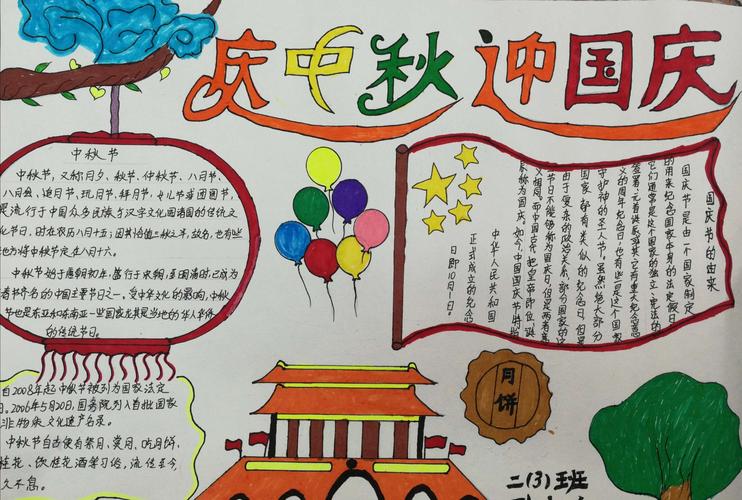 庆中秋 迎国庆
中秋节
中秋节，又称月夕、秋节、仲秋节、八月节、
八月会、追月节、玩月节、拜月节、女儿节或团圆节，
是流行于中国众多民族与汉字文化圈诸国的传统文
化节日，时在农历八月十五；因其恰值三秋之半，故名，也有些
地方将中秋节定在八月十六。
中秋节始于唐朝初年，盛行于宋朝，至明清时，已成为
春节齐名的中国主要节日之一。受中华文化的影响，中秋
节也是东亚和东南亚一些国家尤其是当地的华人华侨
的传统节日。
国庆节的由来
国庆节是由一个国家制定
的用来纪念国家本身的法定假日
它们通常是这个国家的独立、宪法的
签署、元首诞辰或其它有重大纪念意
义的周年纪念日，也有些是这个国家
守护神的圣人节。虽然绝大部分
国家都有类似的纪念日，但是
由于复杂的政治关系，部分国家的这
一节日不能够称为国庆日，但是两者意
义相同。而中国古代把皇帝即位、诞
辰称为国庆。如今，中国国庆节特指
中华人民共和国
正式成立的纪念
日即10月1日。
自2008年起中秋节被列为国家法定
日。2006年5月20日，国务院列入首批国家
非物质文化遗产名录。
中秋节自古便有祭月、赏月、吃月饼、
桂花、饮桂花酒等习俗，流传至今，
久不息。
月饼
二(3)班